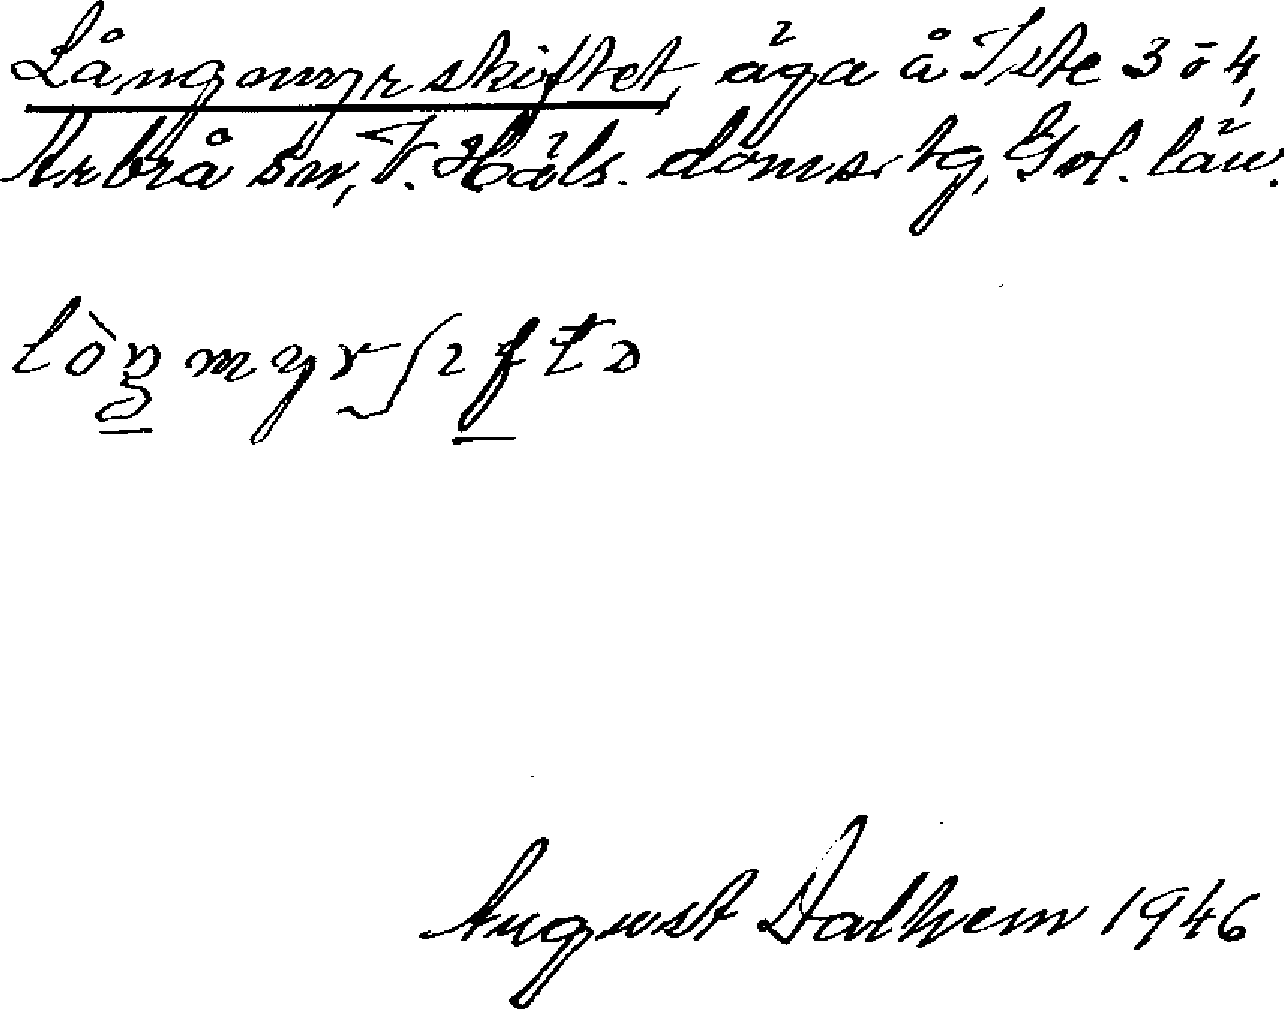 Långmyrskiftet, äga å Iste 3 o 4,
Arbrå sn, V. Häls. doms. tg, Gvl. län.
lòŋmyrʃɩftə
August Dalhem 1946